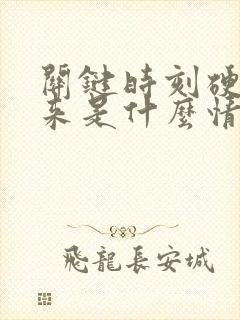 關鍵時刻硬
來是什麼情
飛龍長安城